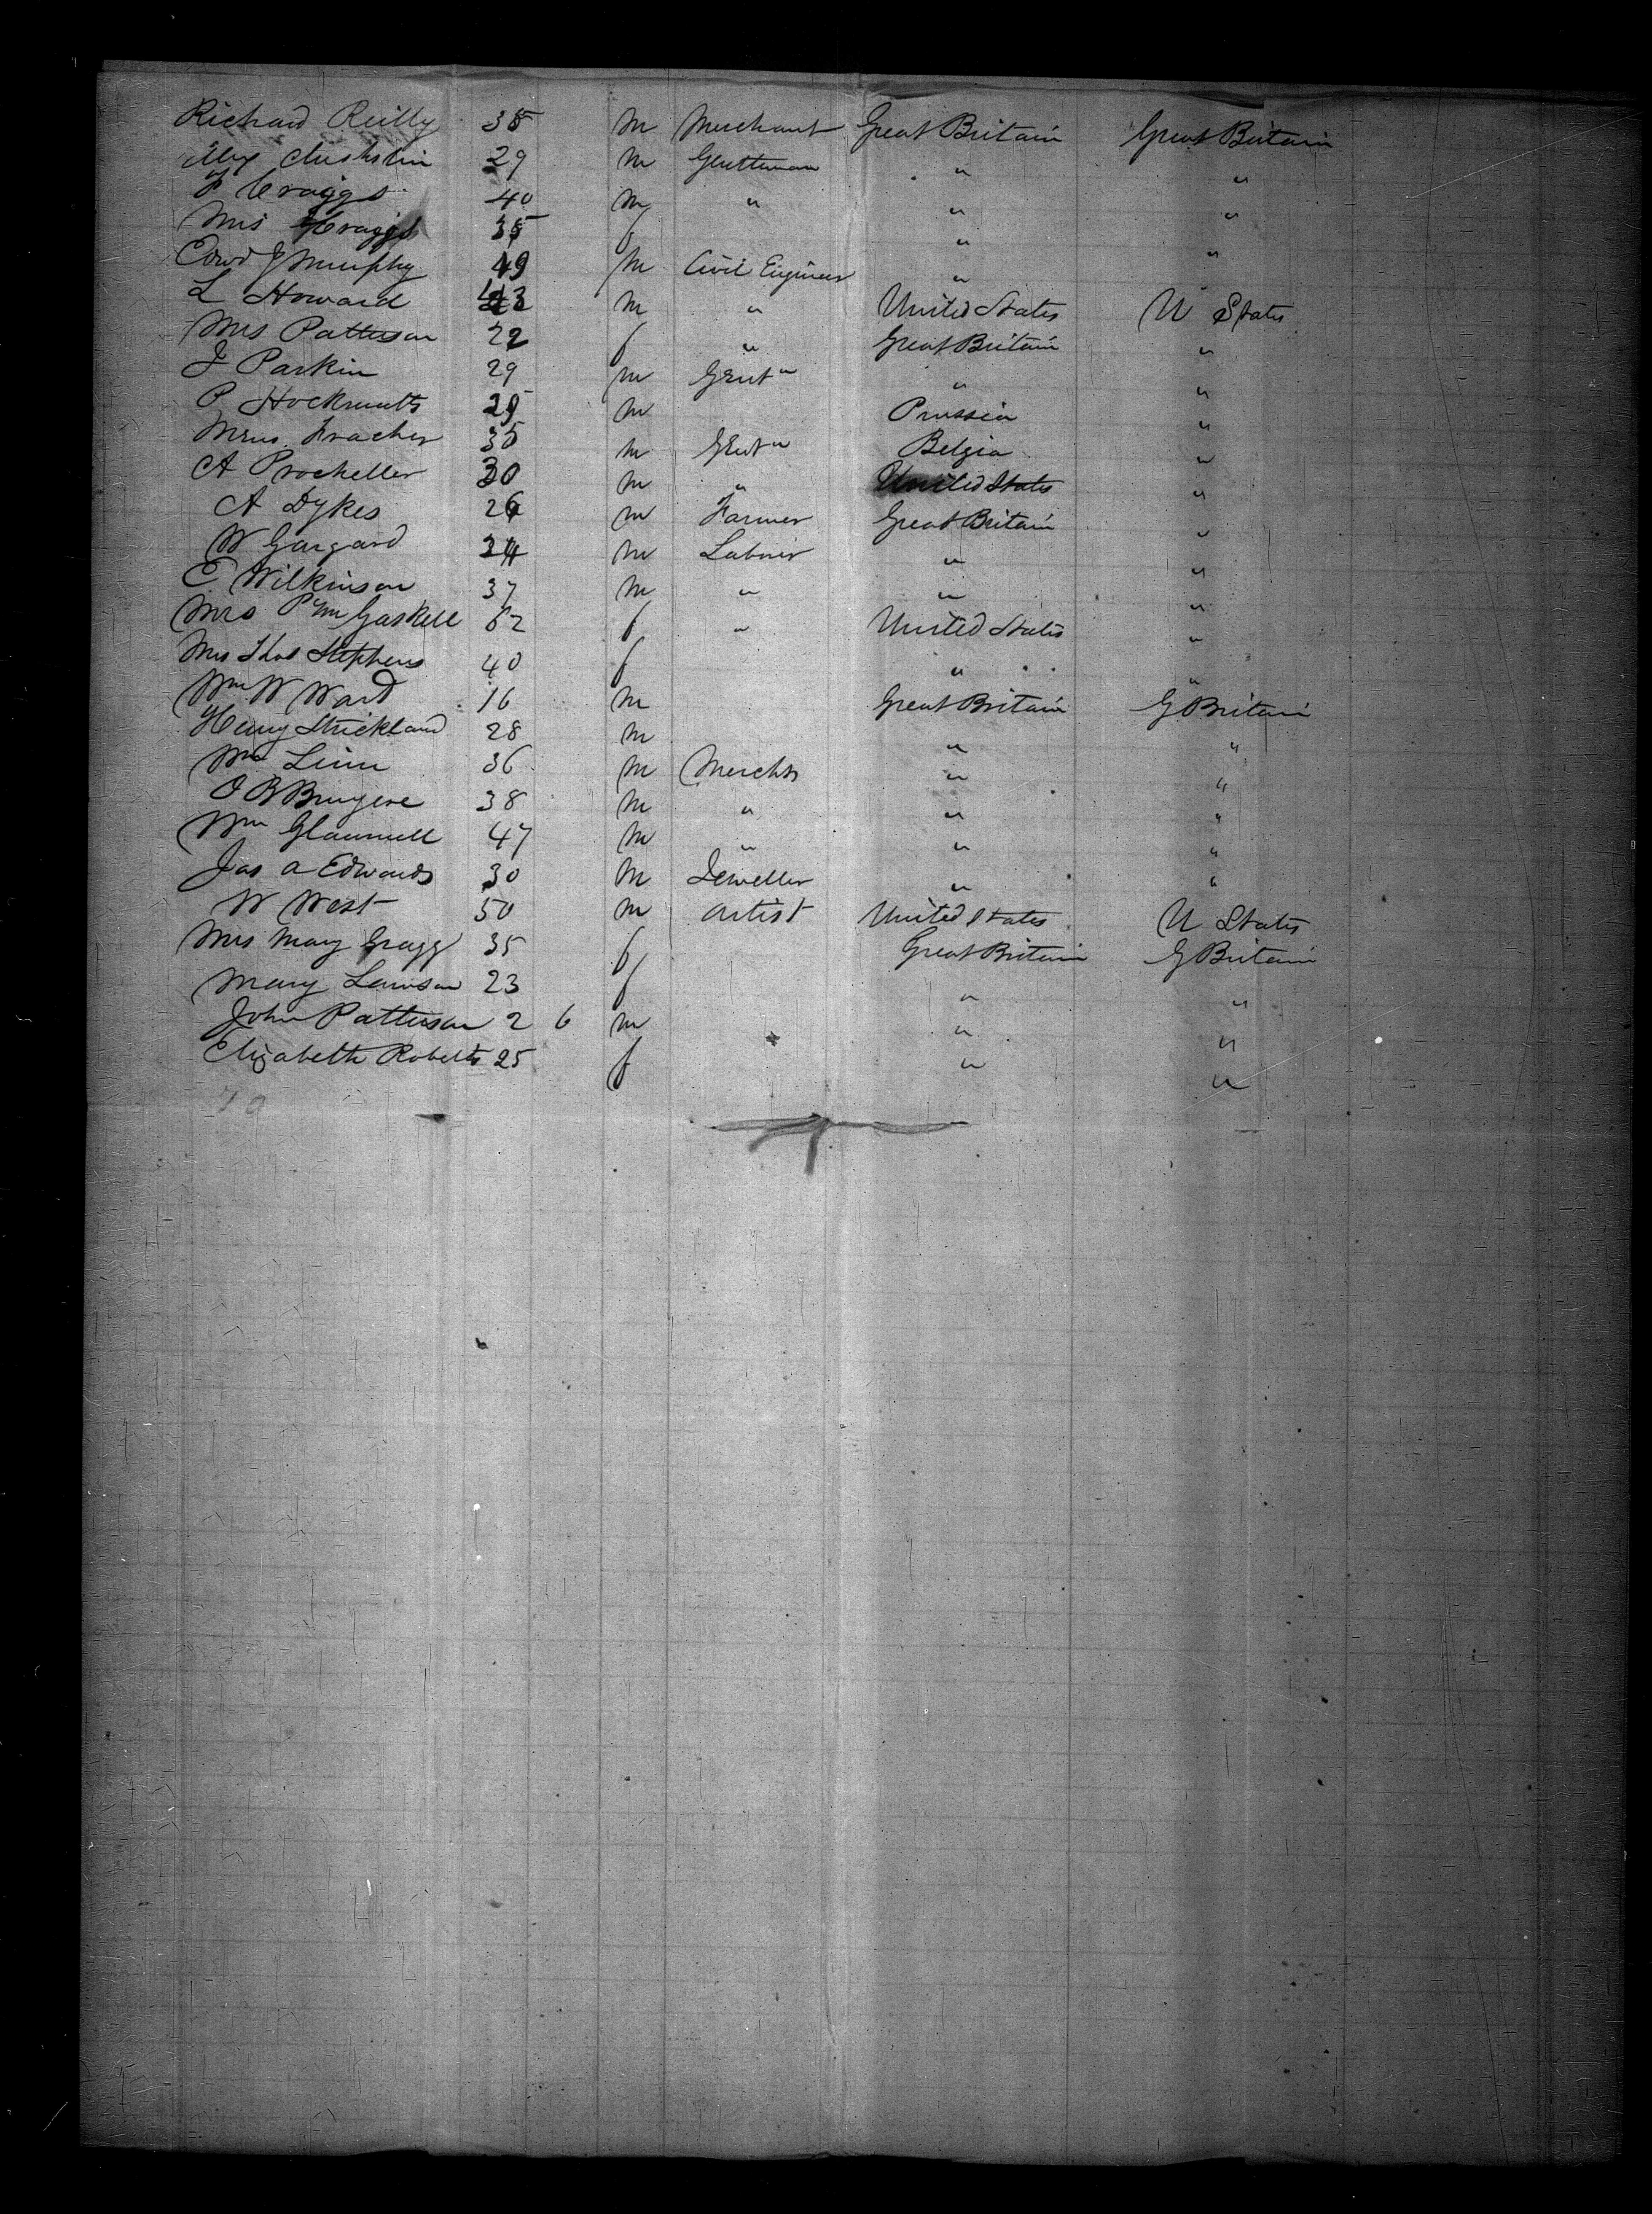 Richard Reilly 35 m Merchant Great Britain Great Britain
Alex 29 m Gentleman " "
F Craggs 40 m " " "
Mrs Craggs 35 f " "
Edwd J Murphy 49 m Civil Engineer "
L Howard 43 m " United States U States
Mrs Patterson 22 f " Great Britain "
J Parkin 29 m Gent " "
P 25 m Prussia "
35 m Gent Belgia "
A Prockeller 30 m " United States "
A Dykes 26 m Farmer Great Britain "
W Gargard 24 m Laborer " "
E Wilkinson 37 m " " "
Mrs Gaskell 62 f " United States "
Mrs Thos Stephens 40 f " "
Wm W Ward 16 m Great Britain G Britain
Henry Strickland 28 m " "
Wm Linn 36 m Merchts " "
O B Bruyere 38 m " " "
Wm 47 m " " "
Jas A Edwards 30 m Jeweller " "
W West 50 m Artist United States U States
Mrs Mary Gragg 35 f Great Britain G Britain
Mary 23 f " "
John Patterson 2 6 m " "
Elizabeth Roberts 25 f " "
70